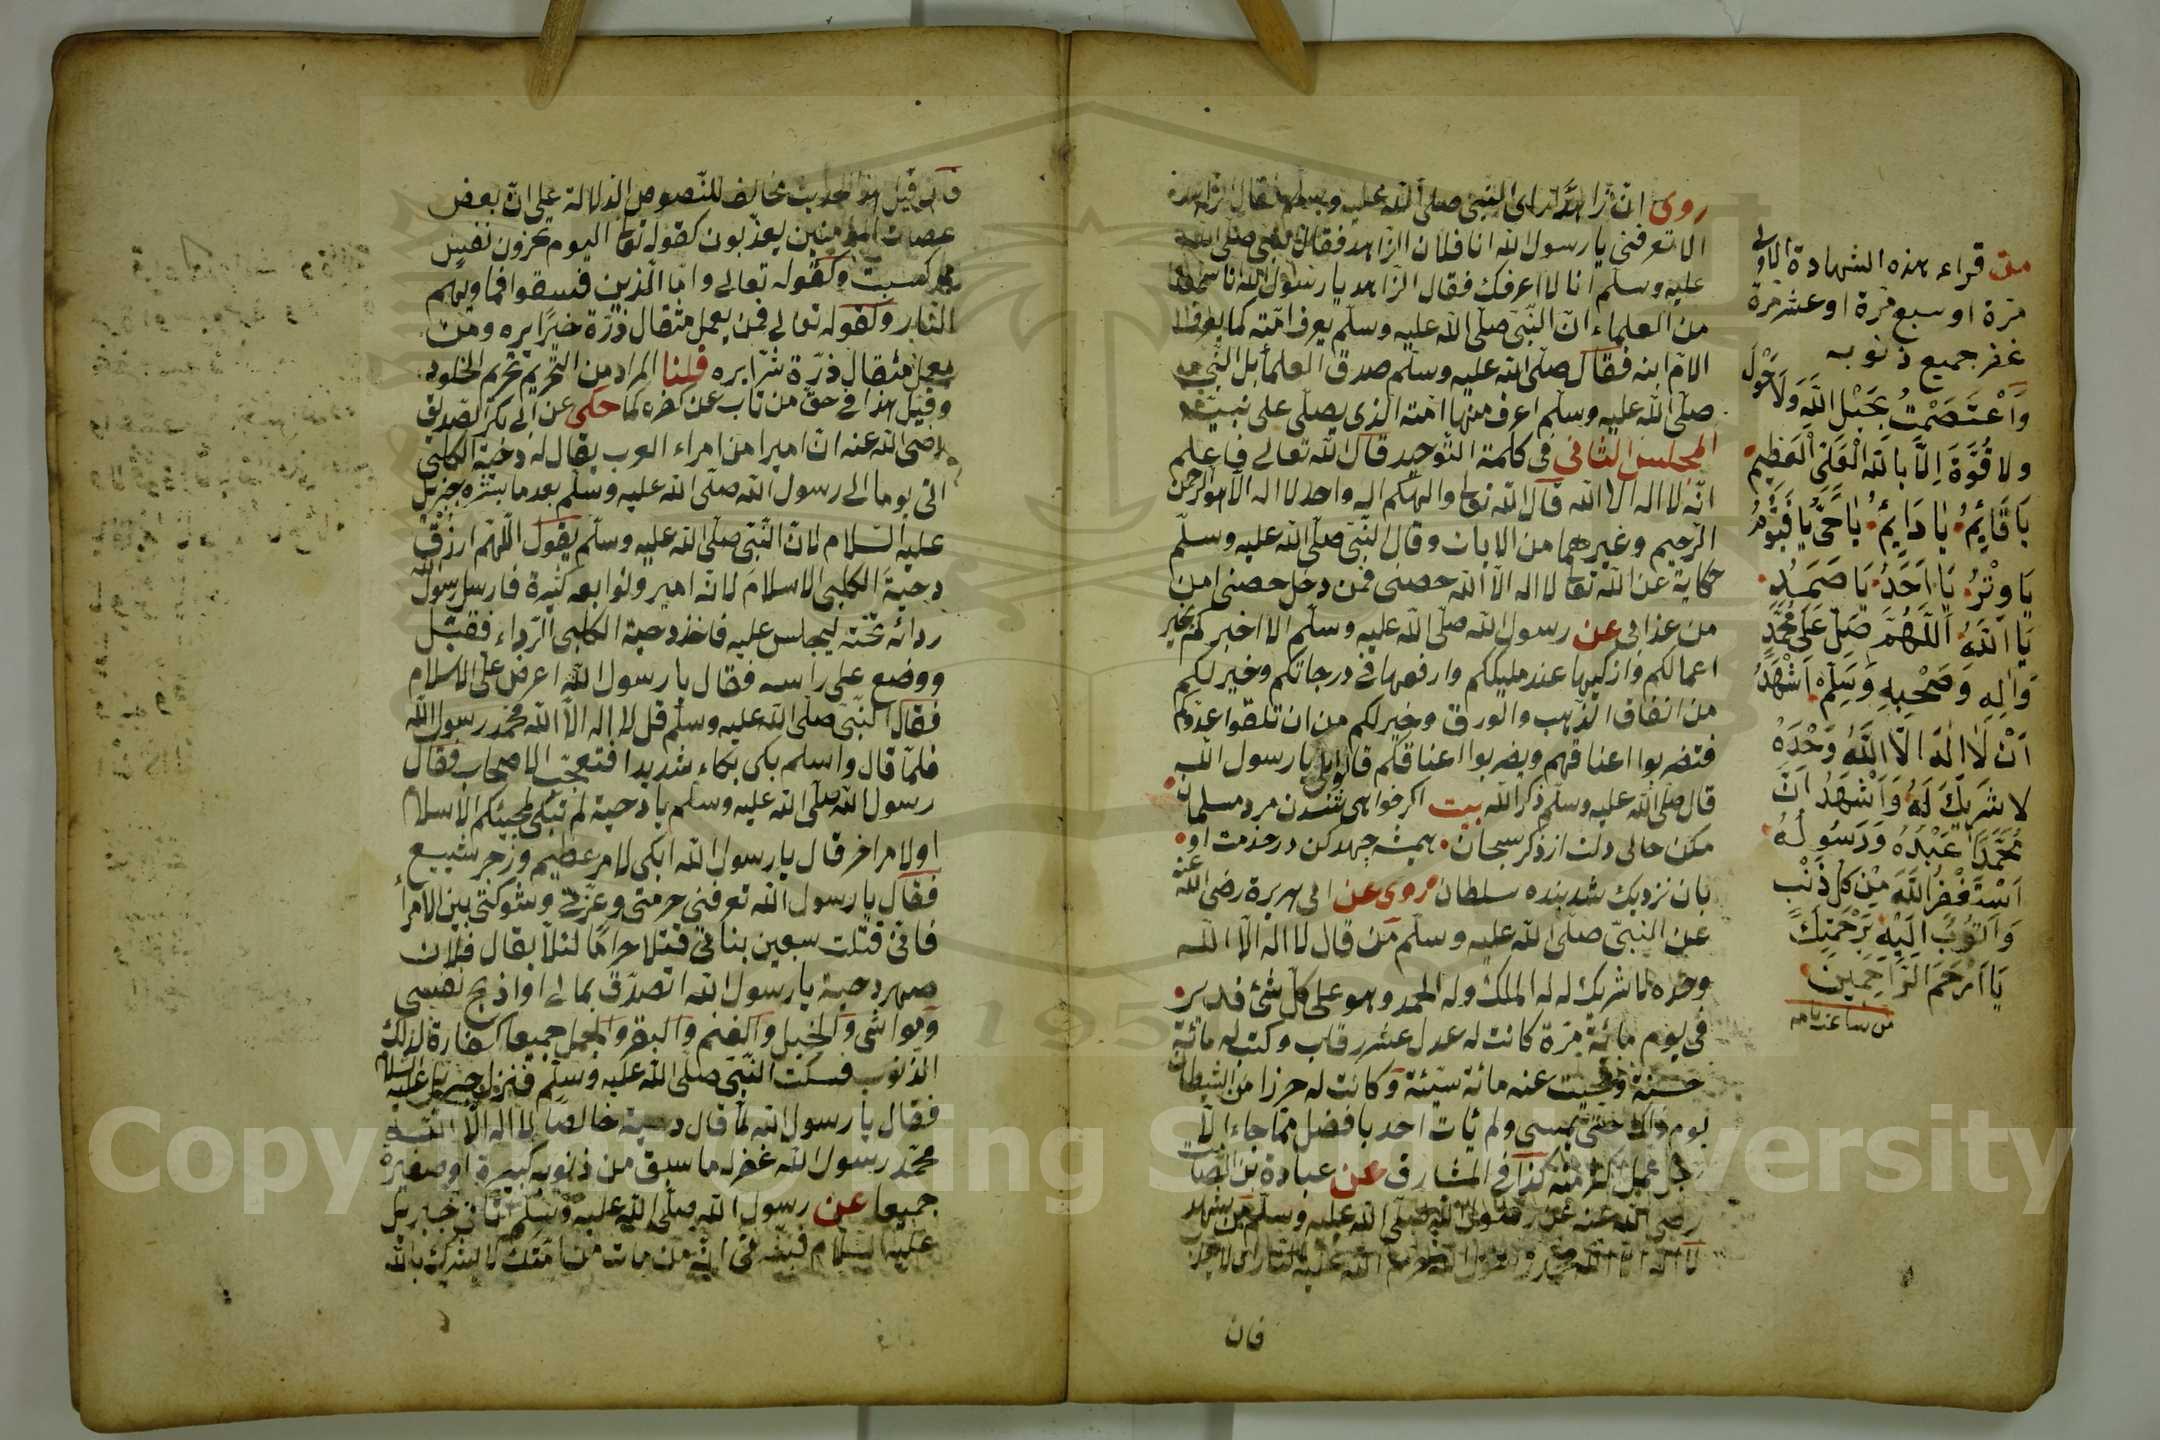 روى ان زاهدا راى النبى صلى الله عليه وسلم فقال الزاهد
الا تعرفنى يا رسول الله انا فلان الزاهد فقال النبى صلى الله
عليه وسلم انا لا اعرفك فقال الزاهد يا رسول الله انا سمعت
من العلماء انّ النّبىّ صلّى الله عليه وسلّم يعرف امّته كما يعرف
الامّ ابنه فقال صلّى الله عليه وسلّم صدق العلماء بل النّبى
صلّى الله عليه وسلم اعرف منها امّته الذى يصلّى على نبيّه
المجلس الثانى فى كلمة التّوحيد قال الله تعالى فاعلم
انّه لا اله الا الله قال الله تعا والهكم اله واحد لا اله الا هو الرحمن
الرّحيم وغيرهما من الايات وقال النّبىّ صلّى الله عليه وسلّم
حكاية عن الله تعا لا اله الّا الله حصنى فمن دخل حصنى امن
من عذابى عن رسول الله صلّى الله عليه وسلّم الا اخبركم بخير
اعمالكم وازكيها عند مليككم وارفعها فى درجاتكم وخير لكم
من انفاق الذّهب والورق وخير لكم من ان تلقوا عدوكم
فتضربوا اعناقهم ويضربوا اعناقكم قالوا بلى يا رسول الله
قال صلّى الله عليه وسلم ذكر الله بيت اكر خواهى شدن مرد مسلمان
مكن خالى دلت از ذكر سبحان هميشه جهد كن در خدمت او
بان نزديك شد بنده سلطان روى عن ابى هريرة رضى الله عنه
عن النبىّ صلّى الله عليه وسلّم من قال لا اله الّا الله
وحده لا شريك له له الملك وله الحمد وهو على كلّ شئ قدير
فى يوم مائة مرّة كانت له عدل عشر رقاب وكتب له مائة
حسنة ومحيت عنه مائة سيّئة وكانت له حرزا من الشيطان
يوم ذلك حتى يمسى ولم يأت احد بافضل ممّا جاء الّا
رجل عمل اكثر منه كذا فى المشارق عن عبادة بن الصّامت
رضى الله عنه عن رسول الله صلّى الله عليه وسلّم من شهد
لا اله الا الله
فان
من قراء هذه الشهادة الاولى
مرّة او سبع مرّة او عشر مرّة
غفر جميع ذنوبه
وَاعْتَصَمْتُ بِحَبْلِ اللّٰهِ وَلَا حَوْلَ
ولا قُوَّةَ اِلَّا بِاللّٰهِ الْعَلِىِّ الْعَظِيمِ
يَا قَايِمُ يَا دَايِمُ يَا حَىُّ يَا قَيُّومُ
يَا وِتْرُ يَا اَحَدُ يَا صَمَدُ
يَا اَللّٰهُ اَللّٰهُمَّ صَلِّ عَلَى مُحَمَّدٍ
وَالِهِ وَصَحْبِهِ وَسَلِّمْ اَشْهَدُ
اَنْ لَا اِلٰهَ الَّا اللّٰهُ وَحْدَهُ
لا شَرِيكَ لَهُ وَاَشْهَدُ اَنَّ
مُحَمَّدًا عَبْدُهُ وَرَسُولُهُ
اَسْتَغْفِرُ اللّٰهَ مِنْ كُلِّ ذَنْبٍ
وَاَتُوبُ اِلَيْهِ بِرَحْمَتِكَ
يَا اَرْحَمَ الرَّاحِمِينَ
فان قيل هذا الحديث مخالف للنّصوص الدلالة على انّ بعض
عصاة المؤمنين يعذّبون كقوله تعا اليوم تجزون نفس
بما كسبت وكقوله تعالى وامّا الّذين فسقوا فماويهم
النّار وكقوله تعالى فمن يعمل مثقال ذرّة خيرًا يره ومن
يعمل مثقال ذرّة شرّا يره قلنا المراد من التّحريم تحريم الخلود
وقيل هذا فى حقّ من تاب عن كفره كما حكى عن ابى بكر الصّديق
رضى الله عنه انّ اميرا من امراء العرب يقال له دحية الكلبى
اتى يوما الى رسول الله صلّى الله عليه وسلّم بعد ما بشّره جبريل
عليه السّلام لانّ النّبىّ صلّى الله عليه وسلّم يقول اللّهمّ ارزق
دحية الكلبى الاسلام لانّه امير وتوابعه كثيرة فارسل رسول الله
ردائه تحته ليجلس عليه فاخذ دحية الكلبى الرّداء فقبّل
ووضع على رأسه فقال يا رسول الله اعرض علىّ الاسلام
فقال النّبىّ صلّى الله عليه وسلّم قل لا اله الّا الله محمّد رسول الله
فلمّا قال واسلم بكى بكاء شديدا فتعجّب الاصحاب فقال
رسول الله صلّى الله عليه وسلّم يا دحية لم تبكى لمجيئكم الاسلام
او لامر اخر قال يا رسول الله ابكى لامر عظيم وزجر شنيع
فقال يا رسول الله تعرفنى حرمتى وعزّتى وشوكتى بين الامراء
فانّى قتلت سبعين بناتى قتلا حرامًا لئلّا يقال فلان
صهر دحية يا رسول الله اتصدّق بمالى او اذبح نفسى
ومواشى والخيل والغنم والبقر والجمل جميعا كفارة لذلك
الذّنوب فسكت النّبىّ صلّى الله عليه وسلّم فنزل جبريل عليه السلام
فقال يا رسول الله لمّا قال دحية خالصا لا اله الّا الله
محمّد رسول الله غفر له ما سبق من ذنوبه كبيرة او صغيرة
جميعا عن رسول الله صلّى الله عليه وسلّم اتانى جبريل
عليه السّلام فبشّرنى انّه من مات من امّتك لا يشرك بالله
Copyright © King Saud University
195